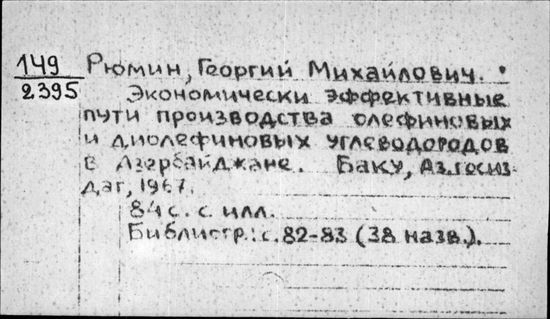 149
2395
Рюмин, Георгий Михайлович.
Экономически эффективные
пути производства олефиновых
и диолефиновых углеводородов
в Азербайджане. Баку, Аз.госиз
дат, 1967.
84 с. с илл.
Библиогр.: с. 82-83 (38 назв.).